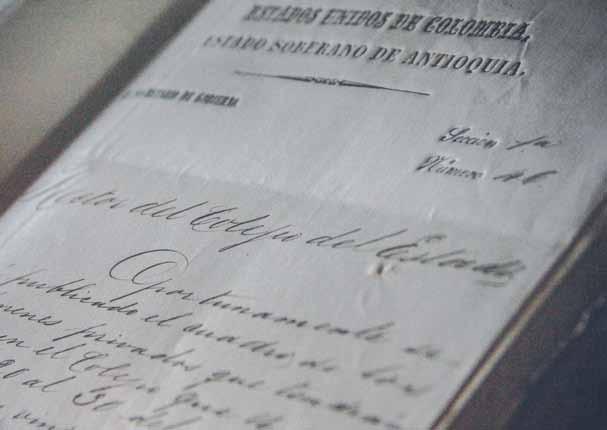 ESTADOS UNIDOS DE COLOMBIA,
ESTADO SOBERANO DE ANTIOQUIA.
DE GOBIERNO
Sección 1a
Número
Rector del Colejio del Estado
Oportunamente se
publicado el cuadro de los
privados que tendrán
en el Colejio que
20 al 30 del